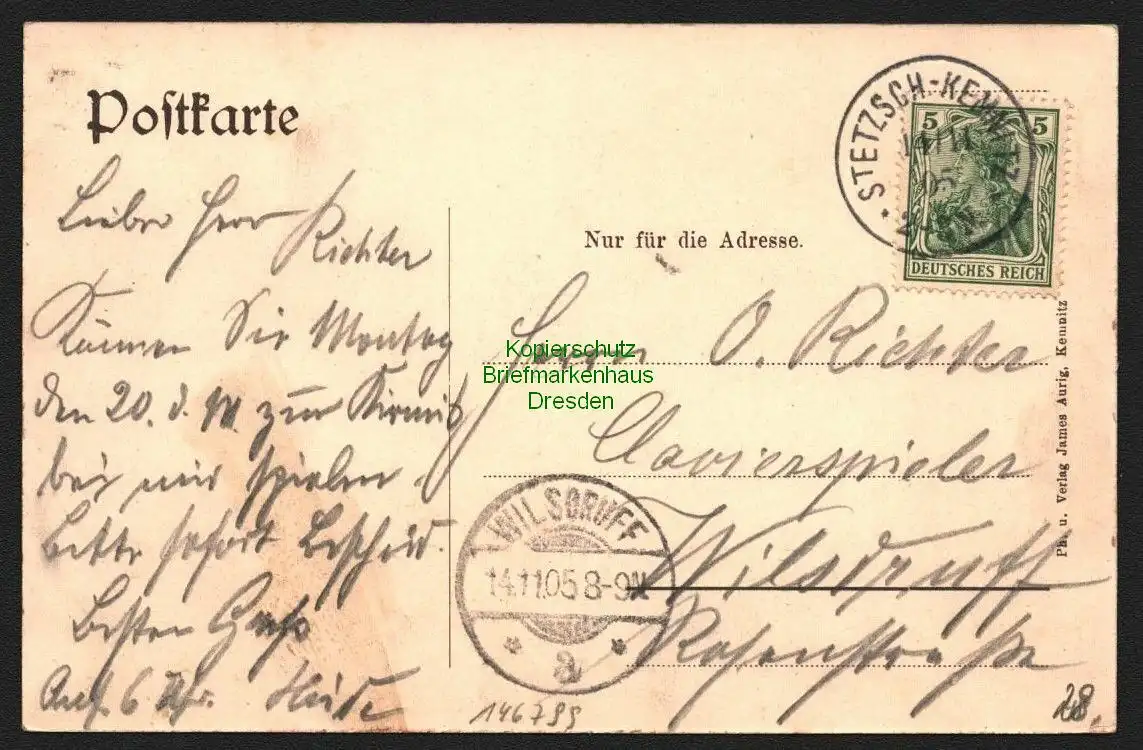 Postkarte
Lieber Herr Richter
Können Sie Montag
den 20. d. M. zur Kirmis
bei mir spielen
Bitte sofort Bescheid.
Besten Gruß
Anf. 6 Uhr. Heide
Nur für die Adresse.
STETZSCH-KEMNITZ
14 11
05
5 5
DEUTSCHES REICH
Herrn O. Richter
Clavierspieler
Wilsdruff
Rosenstraße
Kopierschutz
Briefmarkenhaus
Dresden
WILSDRUFF
14.11.05 8-9N.
a
Ph. u. Verlag James Aurig, Kemnitz
146799
28.